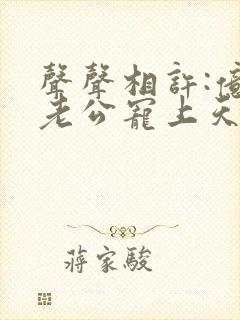 聲聲相許:億
老公寵上天
蔣家駿